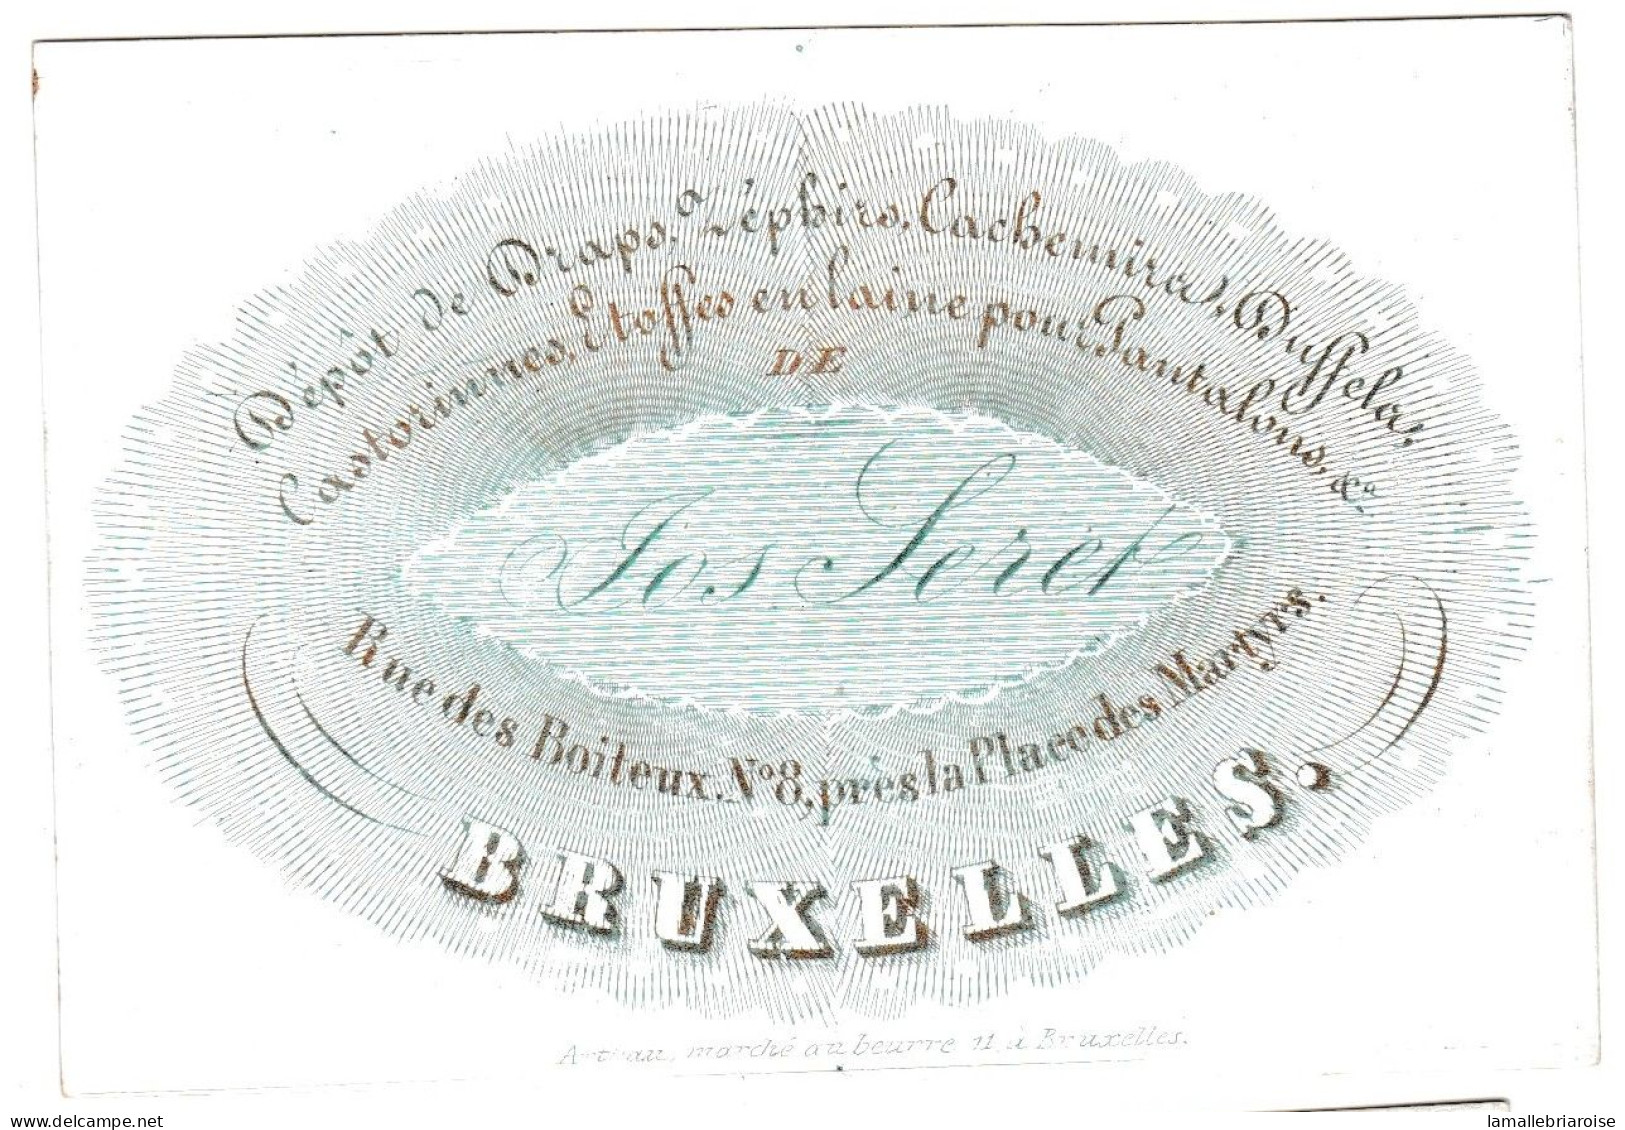 Dépôt de Draps, Zéphirs, Cachemirs, Duffels,
Castorinnes, Etoffes en laine pour Pantalons, &a.
DE
Jos. Seret
Rue des Boiteux, No 8, près la Place des Martyrs.
BRUXELLES.
marché au beurre 11, à Bruxelles.
lamallebriaroise
www.delcampe.net